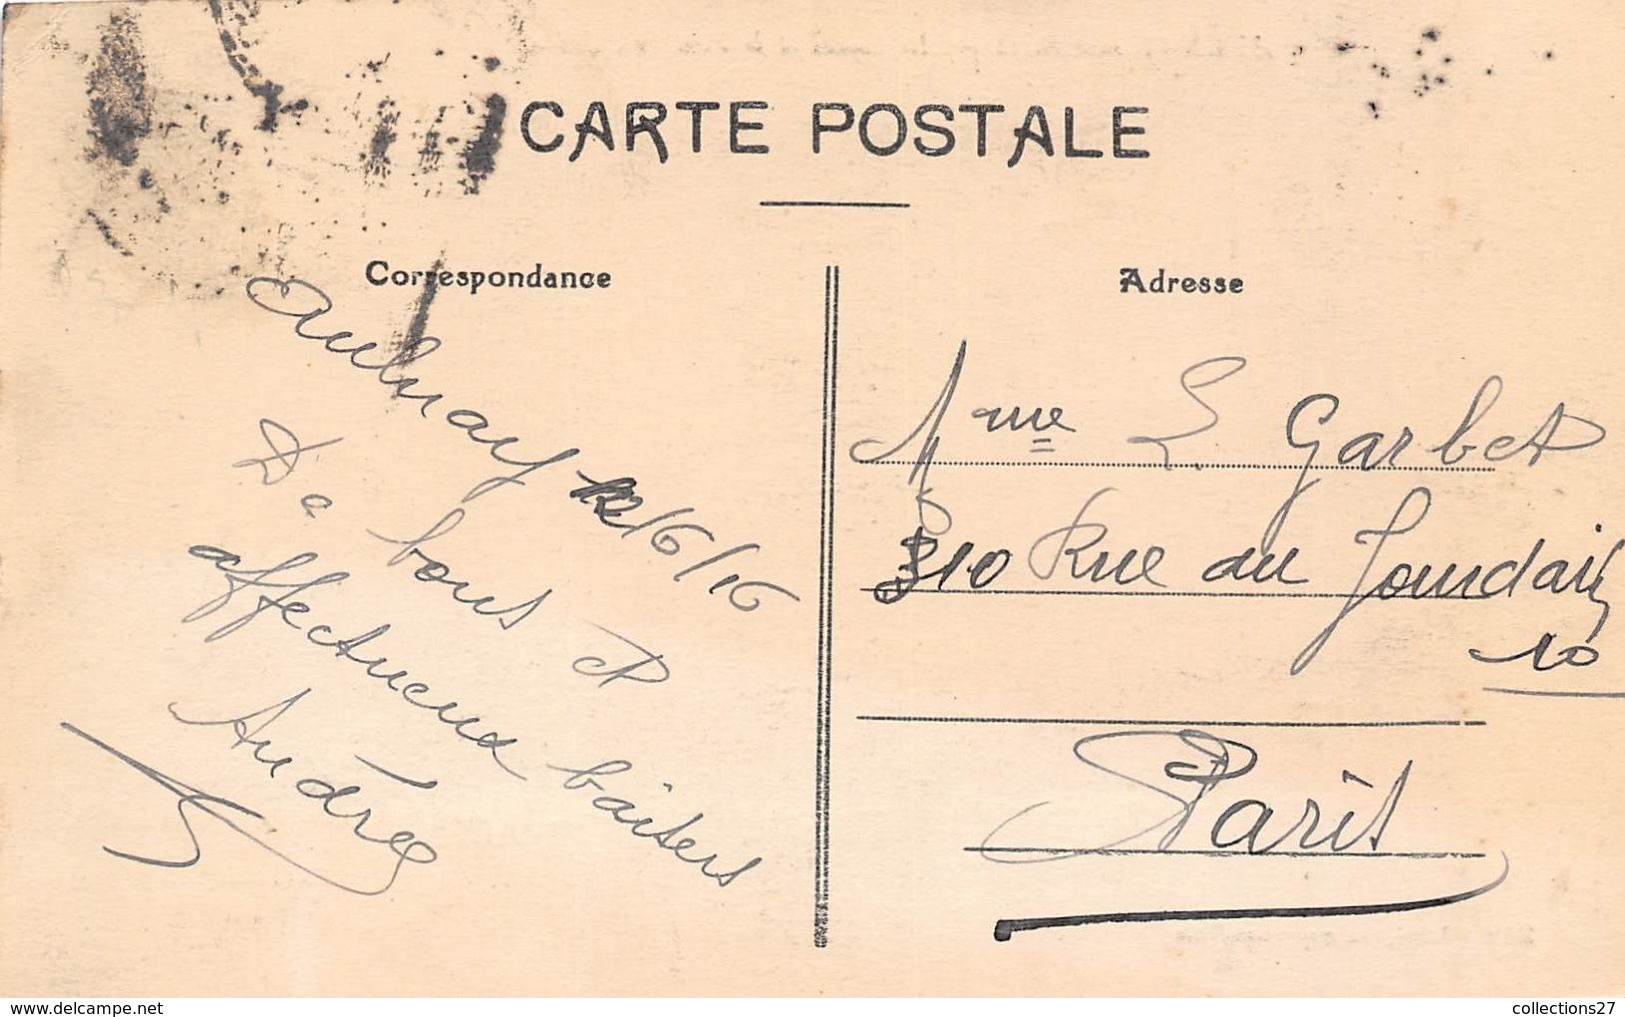 CARTE POSTALE
Correspondance
Aulnay 12/6/16
De bons et
affectueux baisers
André
Adresse
Mme L Garbet
310 Rue du Jourdain
10
Paris
https://www.delcampe.net
collections27